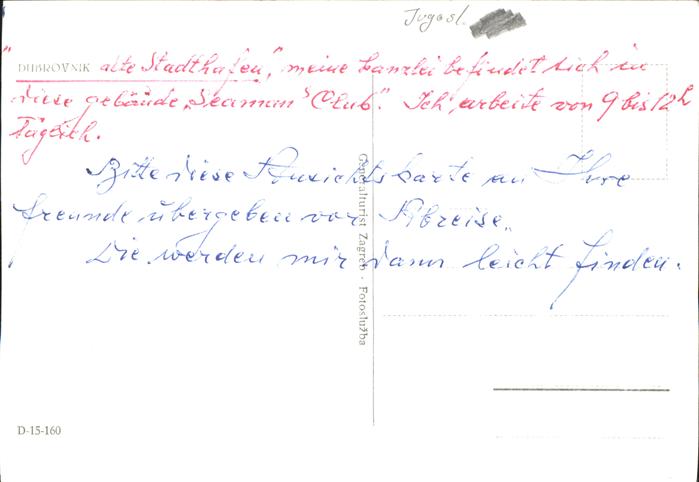 Jugosl.
"DUBROVNIK alte Stadthafen", meine kanzlei befindet sich in
diese gebäude „Seaman's Club". Ich arbeite von 9 bis 12h
Täglich.
Bitte diese Ansichtskarte an Ihre
freunde übergeben vor Abreise.
Die werden mir dann leicht finden.
Generalturist Zagreb - Fotoslužba
D-15-160